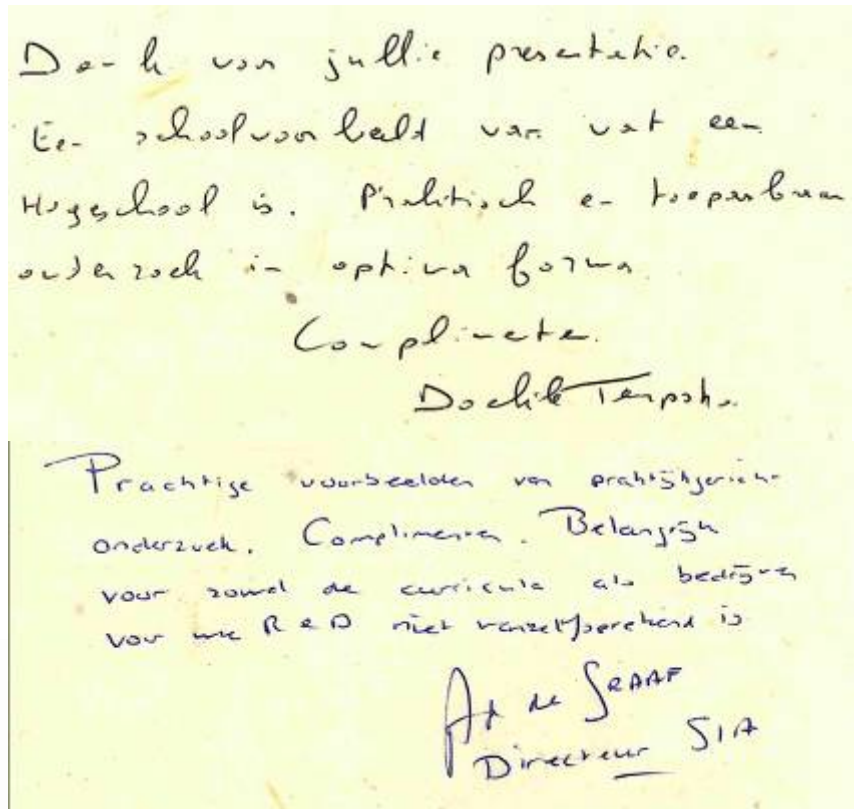 Dank voor jullie presentatie.
Een schoolvoorbeeld van wat een
Hogeschool is. Praktisch en toepasbaar
onderzoek in optima forma.
Complimenten.
Doekle Terpstra.
Prachtige voorbeelden van praktijkgericht
onderzoek. Complimenten. Belangrijk
voor zowel de curricula als bedrijven
voor wie R&D niet vanzelfsprekend is
de GRAAF
Directeur SIA